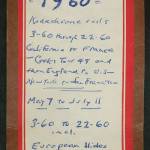 1960=
Kodachrome rolls
3-60 through 22-60
California to France
Cook's Tour 48 and
then England to U.S.—
New York to San Francisco
May 7 to July 11
3-60 to 22-60
incl.
European Slides